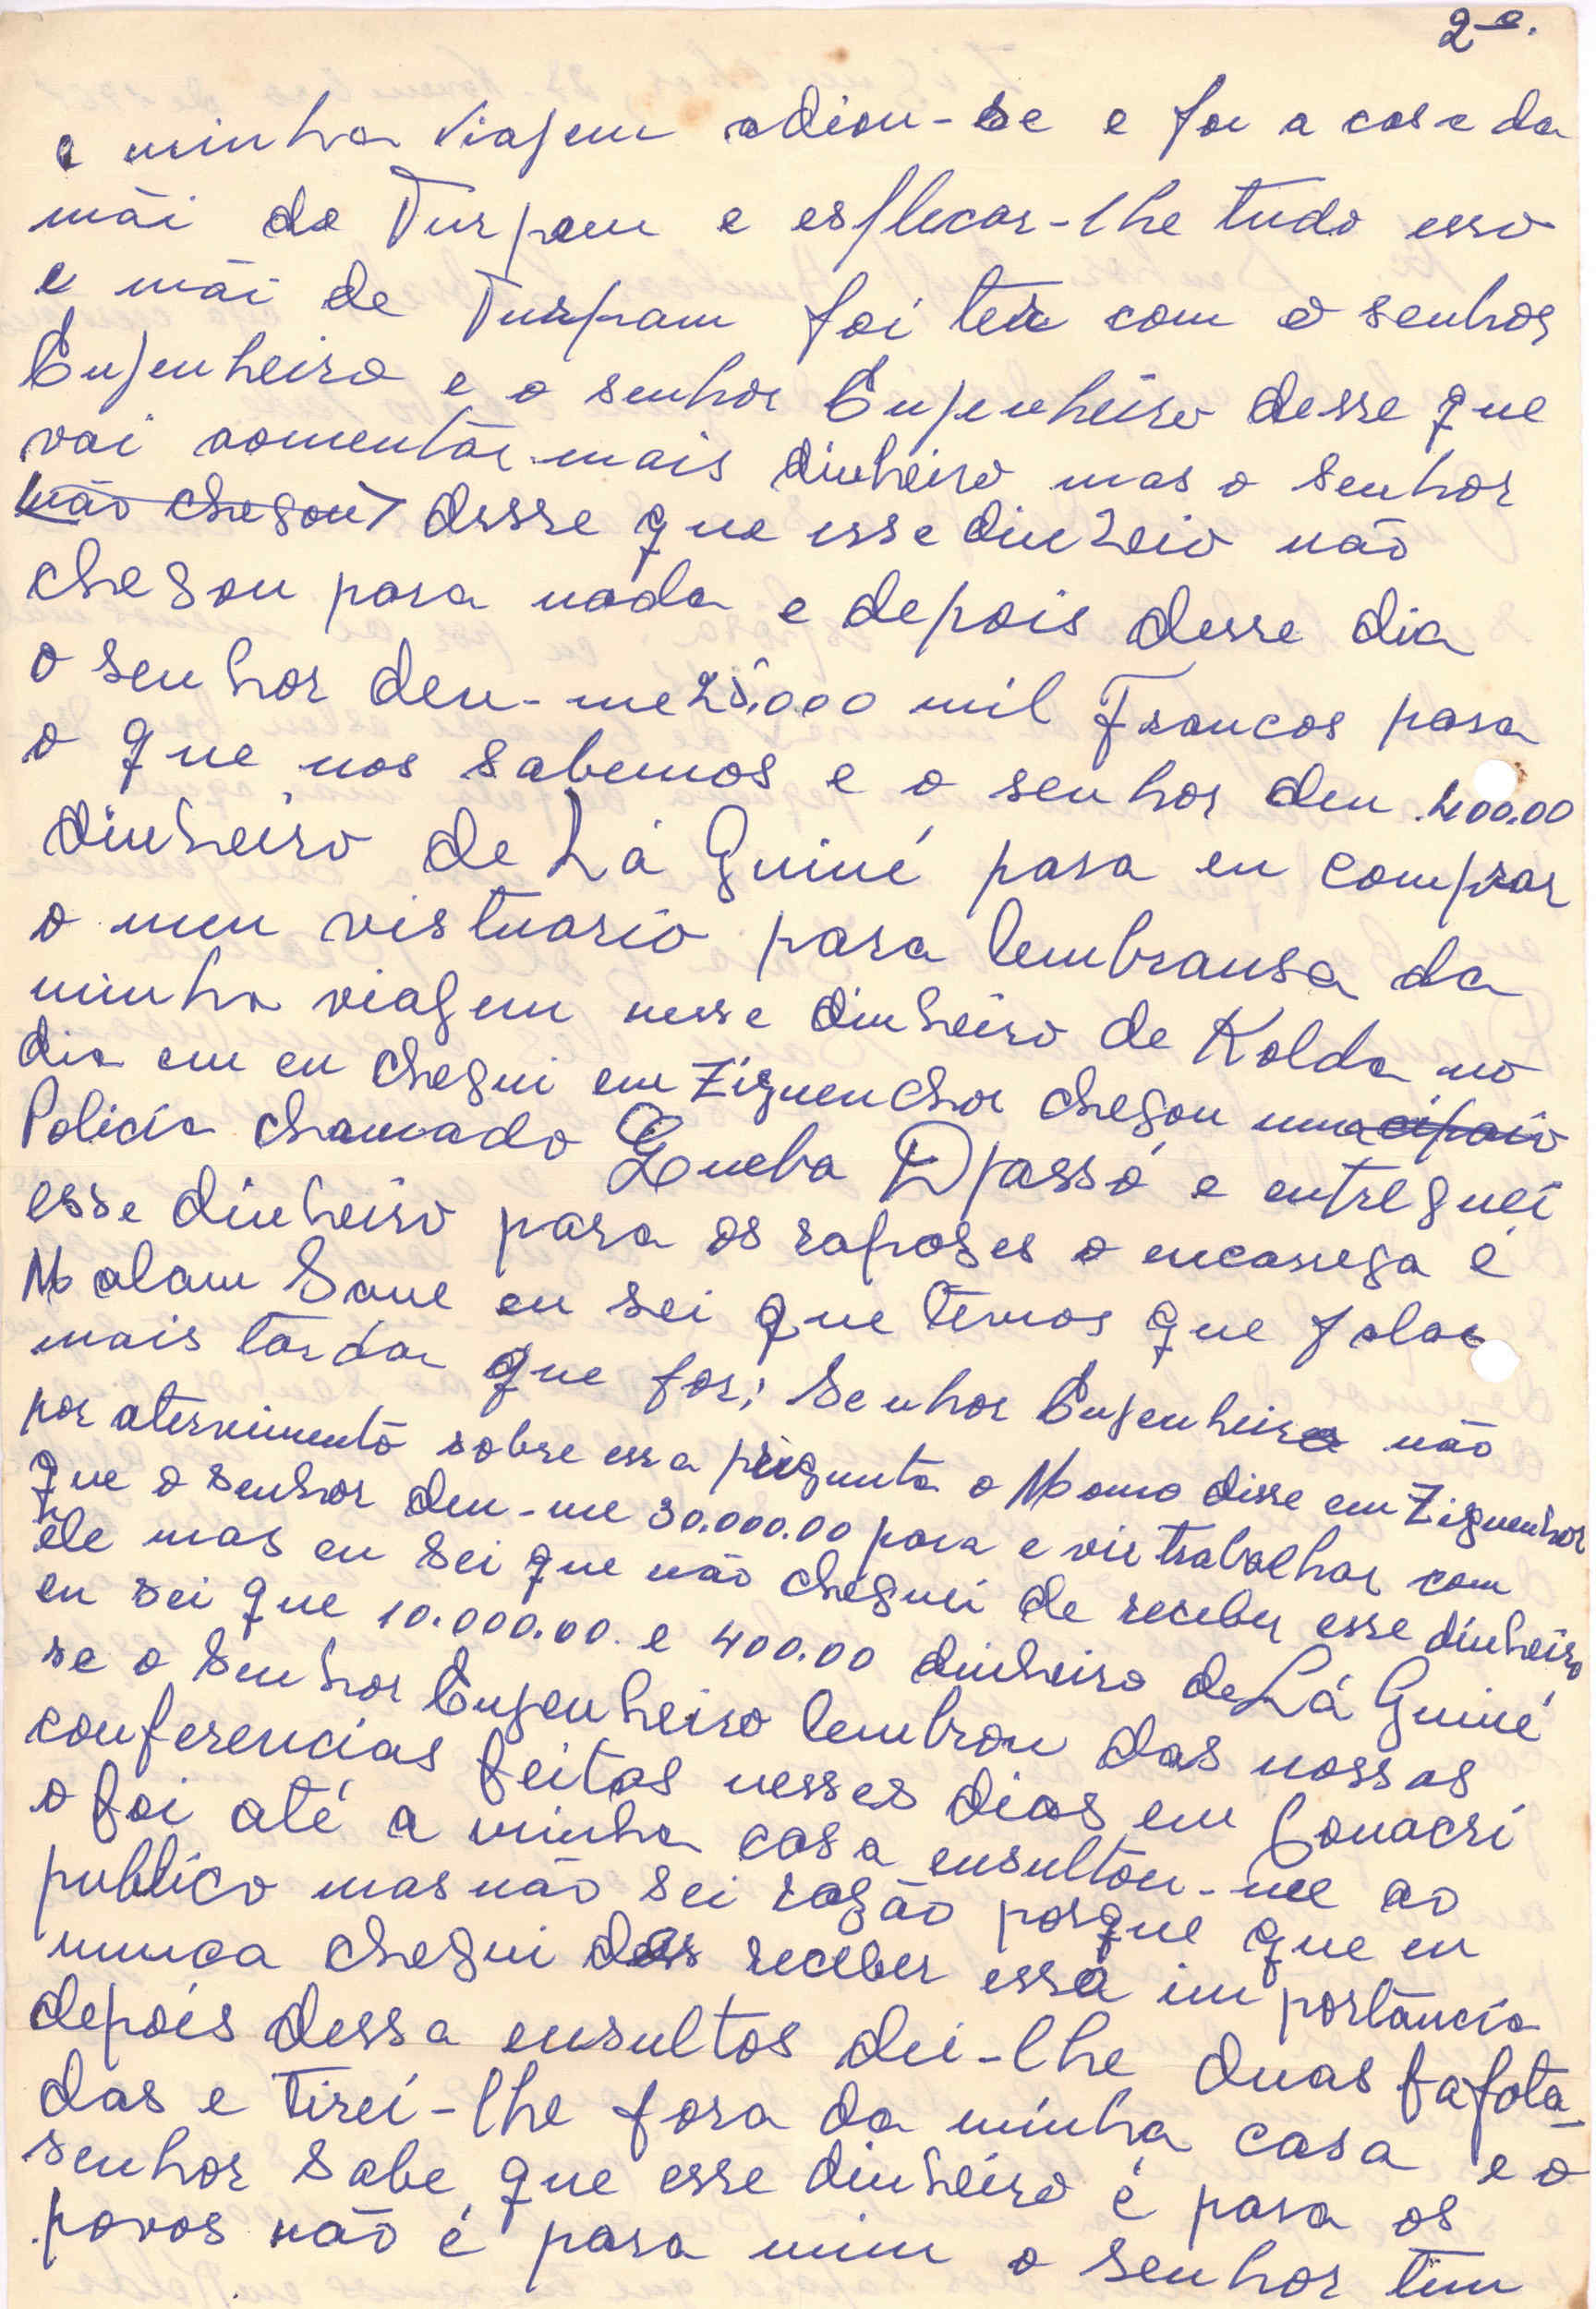 2-a.
a minha viagem adiou-se e foi a casa da
mãi do Turpam e esplicar-lhe tudo esso
e mãi de Turpam foi ter com o senhor
Engenheiro e o senhor Engenheiro desse que
vai aomentár mais dinheiro mas o senhor
não chegou desse que esse dinheiro não
chegou para nada e depois desse dia
o senhor deu-me 25.000 mil Francos para
o que nos sabemos e o senhor deu 400.00
dinheiro de Lá Guiné para eu comprar
o meu vistuario para lembransa da
minha viagem nesse dinheiro de Kolda no
dia em eu chegui em Ziguenchor chegou uma cipaio
Policia chamado Queba Djassó e entreguei
esse dinheiro para os rapazes o encarrega é
Malam Sane eu sei que temos que falar
mais tardar que for; Senhor Engenheiro não
por atervimentô sobre essa prigunta o Momo disse em Ziguenhor
que o senhor deu-me 30.000.00 para e vir trabalhar com
ele mas eu sei que não cheguei de receber esse dinheiro
eu sei que 10.000.00. e 400.00 dinheiro de Lá Guiné
se o Senhor Engenheiro lembrou das nossas
conferencias feitas nesses dias em Conacri
o foi até a minha casa ensultou-me ao
publico mas não sei razão porque que eu
nunca chegui das receber essa importância
depois dessa ensultos dei-lhe duas bafota-
das e tirei-lhe fora da minha casa e o
senhor sabe que esse dinheiro é para os
povos não é para mim o senhor tem